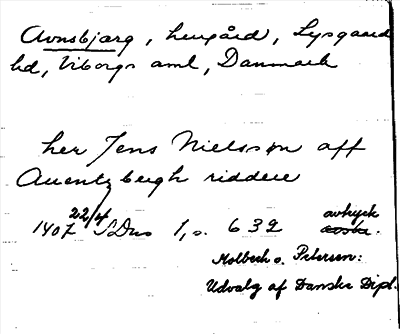 Avnsbjærg, herrgård, Lysgaard
hd, Viborgs amt, Danmark
her Jens Nielssøn aff
Auentzbergh riddere
1407 22/4 SDns 1, s. 632 avtryck
Molbech o. Petersen:
Udvalg af Danske Dipl.